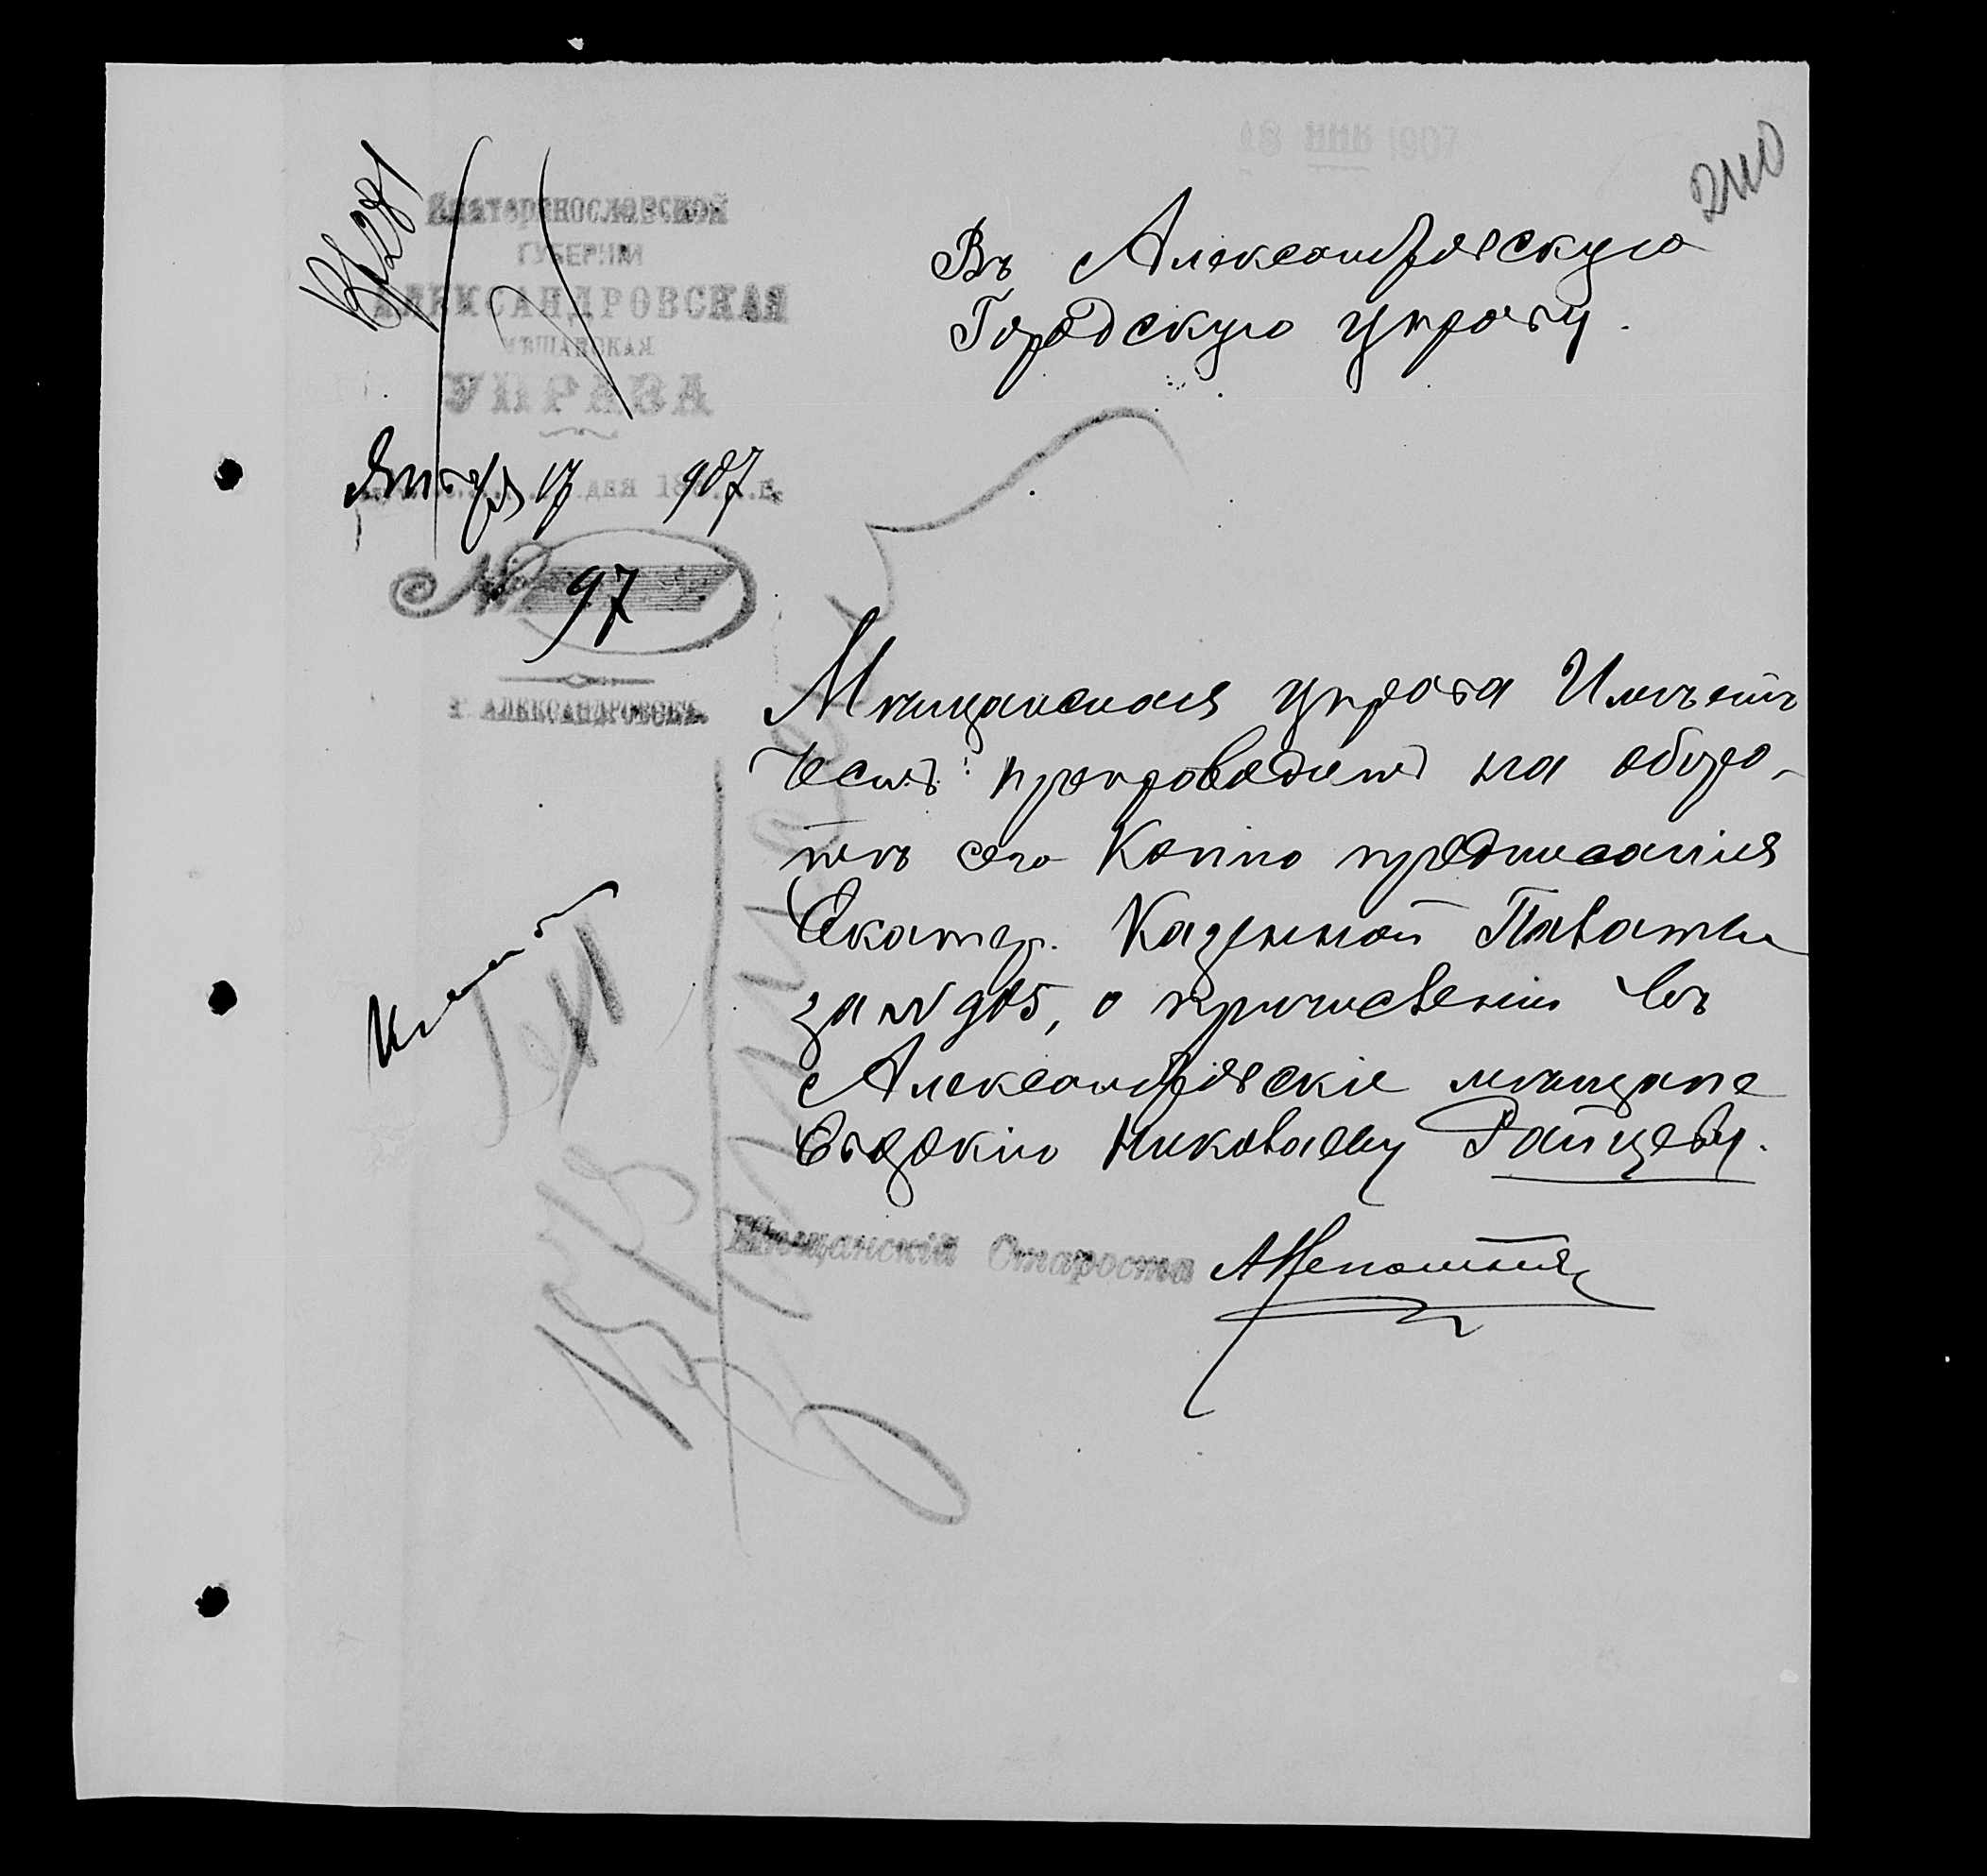 18 ЯНВ 1907
240
Вх 281
Екатеринославской
ГУБЕРНІИ
АЛЕКСАНДРОВСКАЯ
МѢЩАНСКАЯ
УПРАВА
Января 17 дня 1907 г.
№ 97
Г. АЛЕКСАНДРОВСКЪ
Въ Александровскую
Городскую управу.
Мѣщанская управа Имѣетъ
честь препроводить на оборо-
тѣ сего Копію предписанія
Екатер. Казенной Палаты
за № 905, о причисленіи въ
Александровскіе мѣщане
Евдокію Николаеву Райцеву.
Мѣщанскій Староста